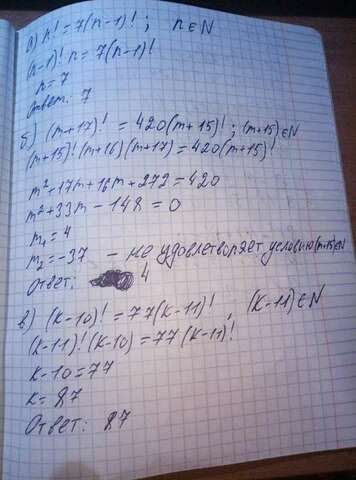 а) n! = 7(n-1)! ; n∈N
(n-1)! n = 7(n-1)!
n = 7
Ответ: 7
б) (m+17)! = 420(m+15)! ; (m+15)∈N
(m+15)!(m+16)(m+17) = 420(m+15)!
m²+17m+16m+272=420
m²+33m-148=0
m₁=4
m₂=-37 - не удовлетворяет условию (m+15)∈N
Ответ: 4
в) (k-10)! = 77(k-11)! , (k-11)∈N
(k-11)!(k-10) = 77(k-11)!
k-10=77
k=87
Ответ: 87